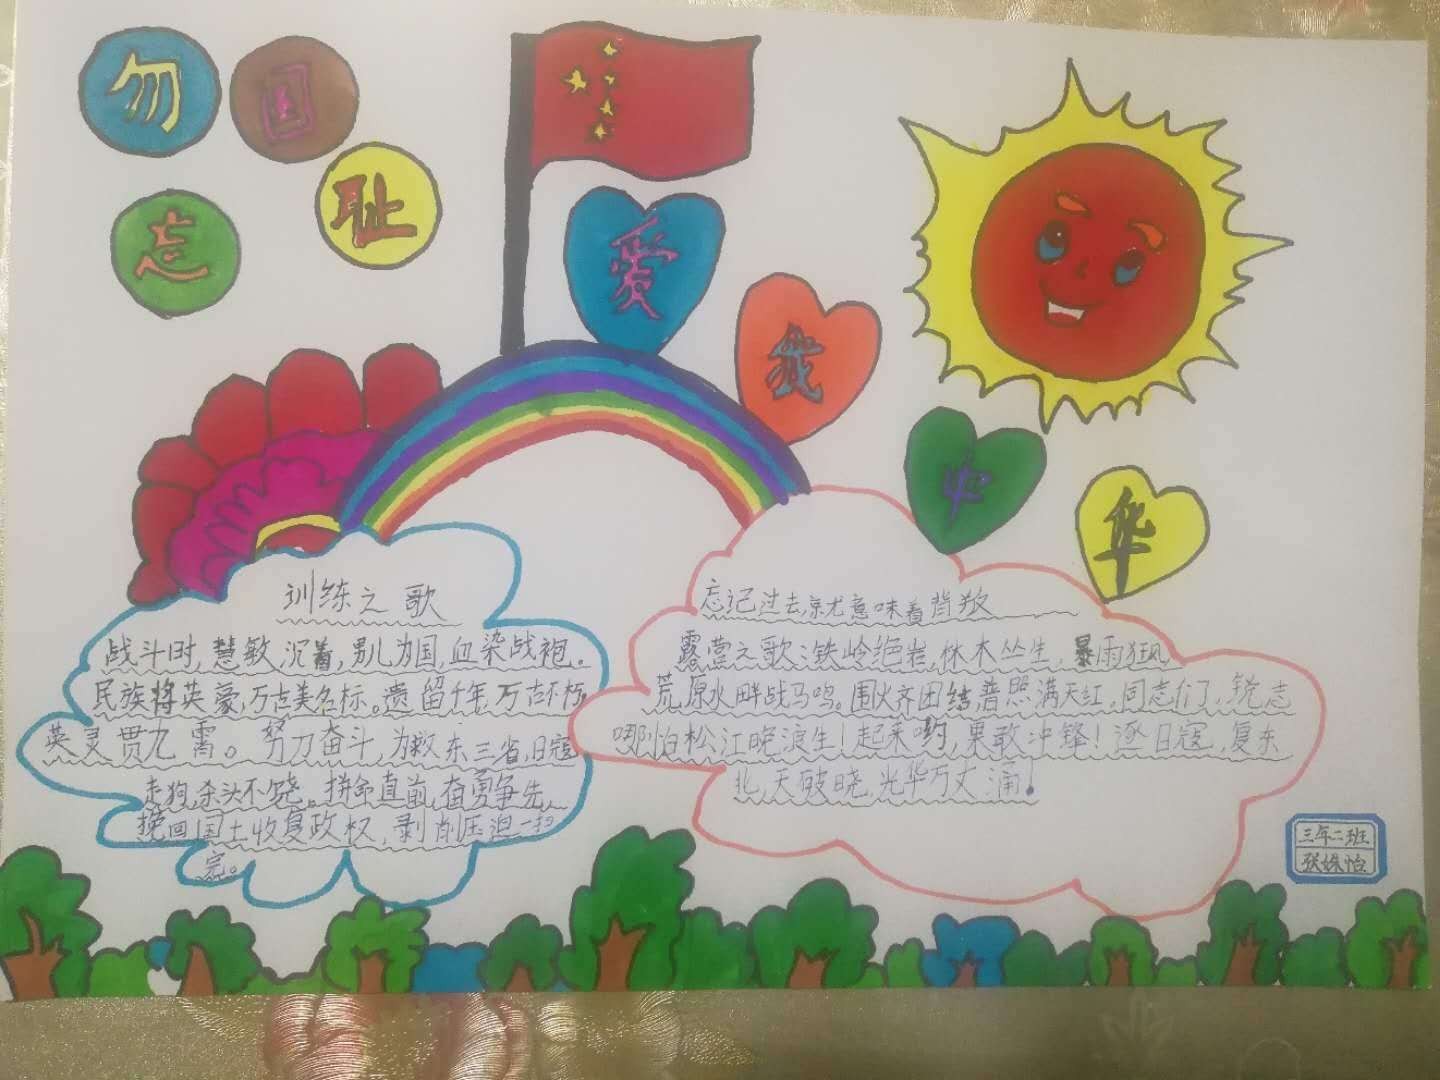 勿
国
忘
耻
爱
我
中
华
训练之歌
战斗时,慧敏,沉着,男儿为国,血染战袍。
民族将英豪,万古美名标。遗留千年,万古不朽,
英灵贯九霄。努力奋斗,为救东三省,日寇
走狗,杀头不饶。拼命直前,奋勇争先,
挽回国土收复政权,剥削压迫一扫
完。
忘记过去,就意味着背叛
露营之歌:铁岭绝岩,林木丛生,暴雨狂风,
荒原水畔战马鸣。围火齐团结,普照满天红。同志们了,锐志
哪怕松江晚浪生!起来哟,果敢冲锋!逐日寇,复东
北,天破晓,光华万丈涌!
三年二班
张姝怡